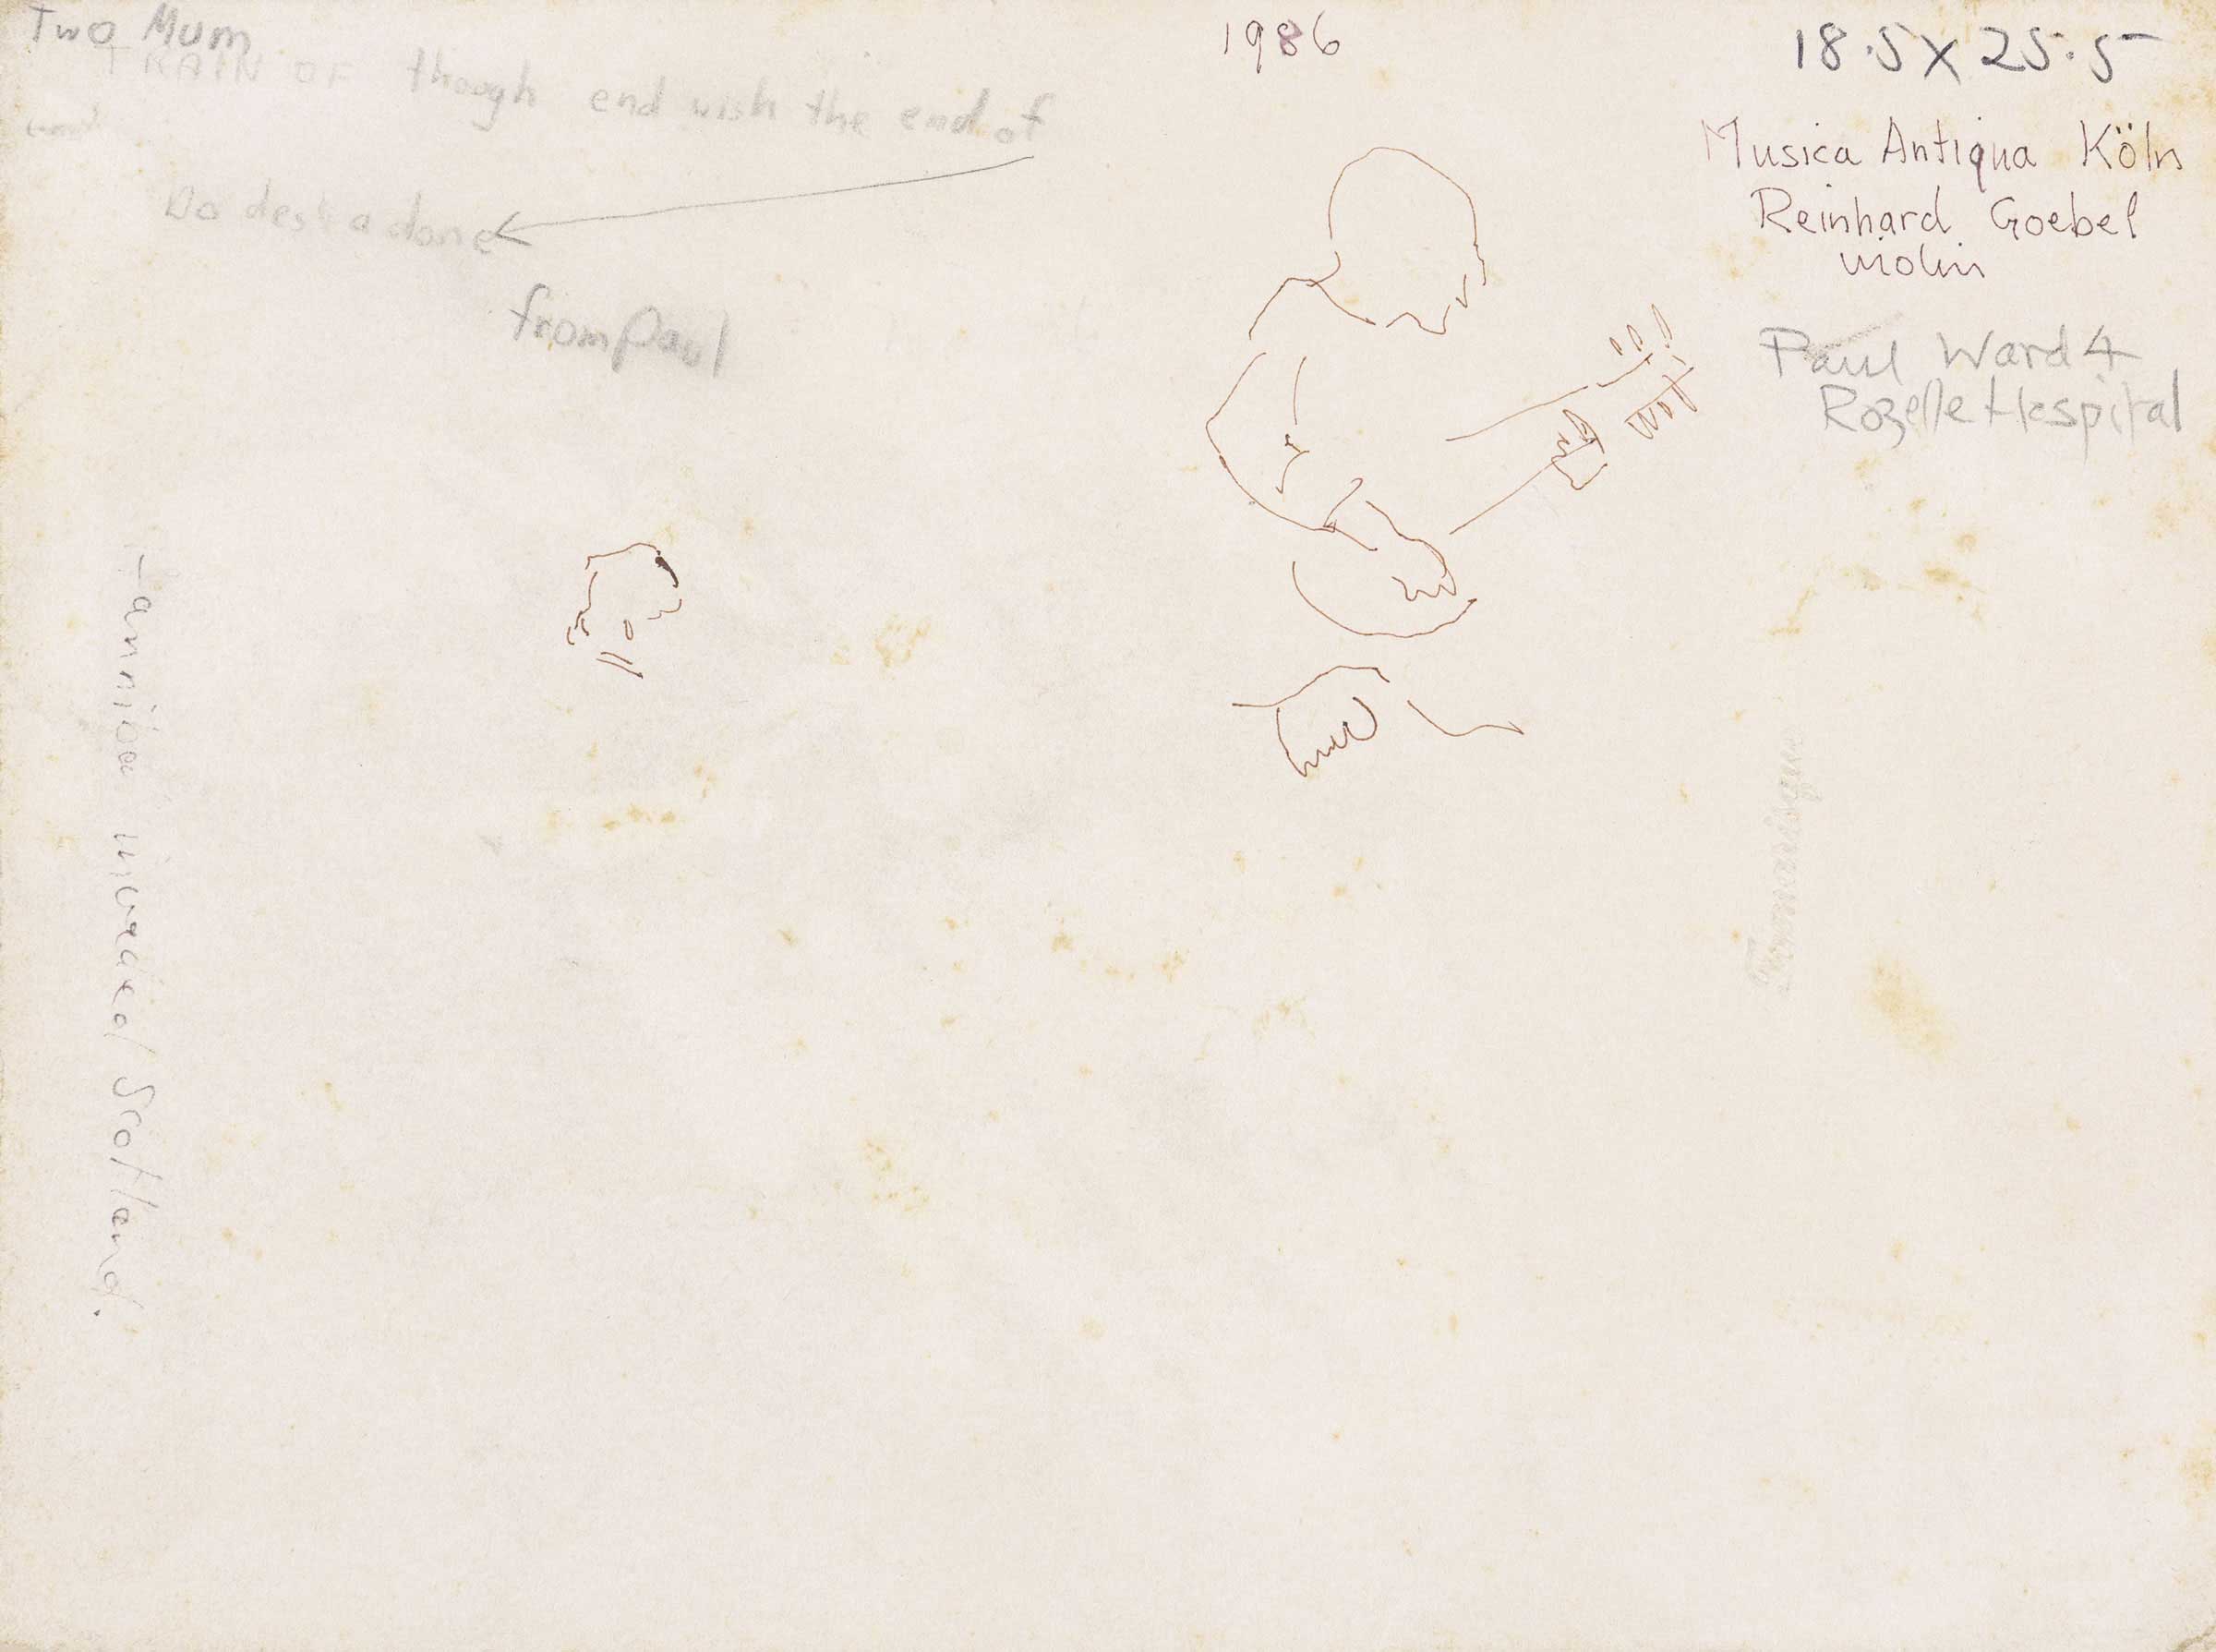 Two Mum
TRAIN OF though end wish the end of
Do des a done
from Paul
1986
18.5 x 25.5
Musica Antiqua Köln
Reinhard Goebel
violin
Paul Ward 4
Rozelle Hospital
Scotland.